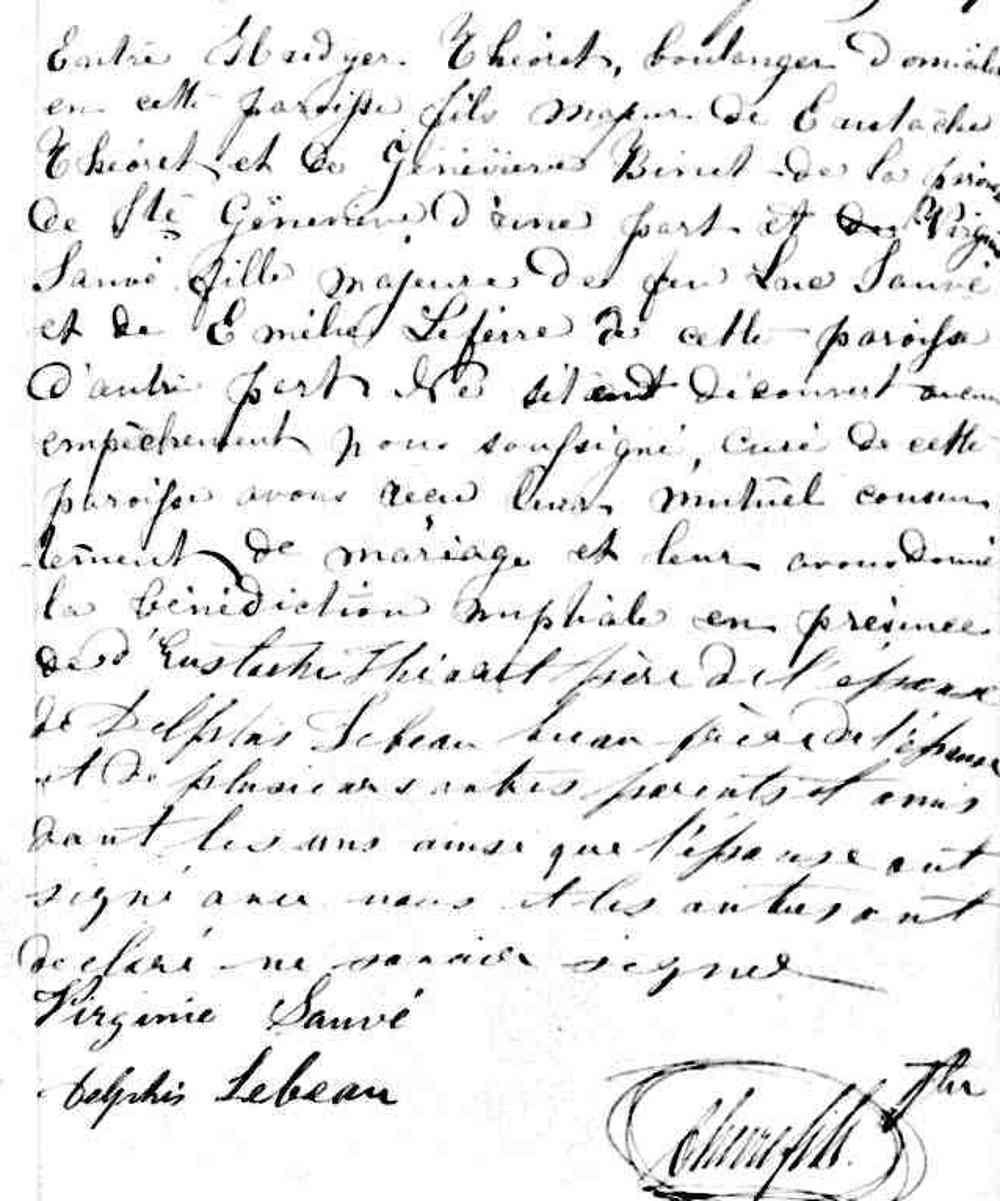 Entre Théoret, boulanger domicilié
en cette paroisse fils majeur de Eustache
Théoret et de Geneviève Binet de la
de Ste Geneviève d'une part et de Virginie
Sauvé fille majeure de feu Luc Sauvé
et de Emilie Lefevre de cette paroisse
d'autre part Ne s'étant découvert aucun
empêchement nous soussigné, curé de cette
paroisse avons recu leur mutuel consen
tement de mariage et leur avons donné
la bénédiction nuptiale en présence
de d'Eustache Théoret père de l'époux
de Delphis Lebeau beau frère de l'épouse
et de plusieurs autres parents et amis
dont les uns ainsi que l'épouse ont
signé avec nous et les autres ont
declaré ne savoir signer
Virginie Sauvé
Delphis Lebeau
Ptre